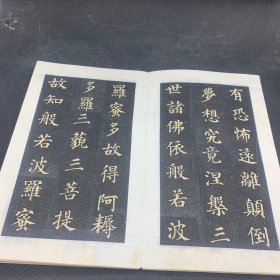 有恐怖遠離顛倒
夢想究竟涅槃三
世諸佛依般若波
羅蜜多故得阿耨
多羅三藐三菩提
故知般若波羅蜜